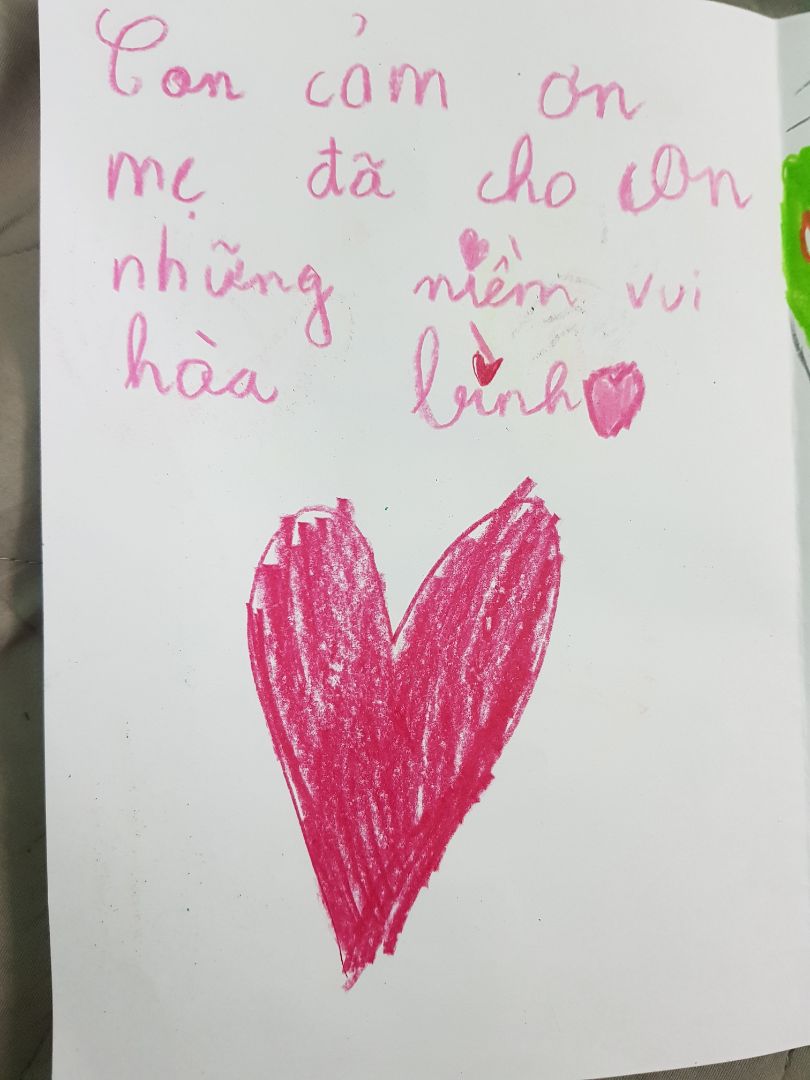 Con cảm ơn
mẹ đã cho con
những niềm vui
hòa bình